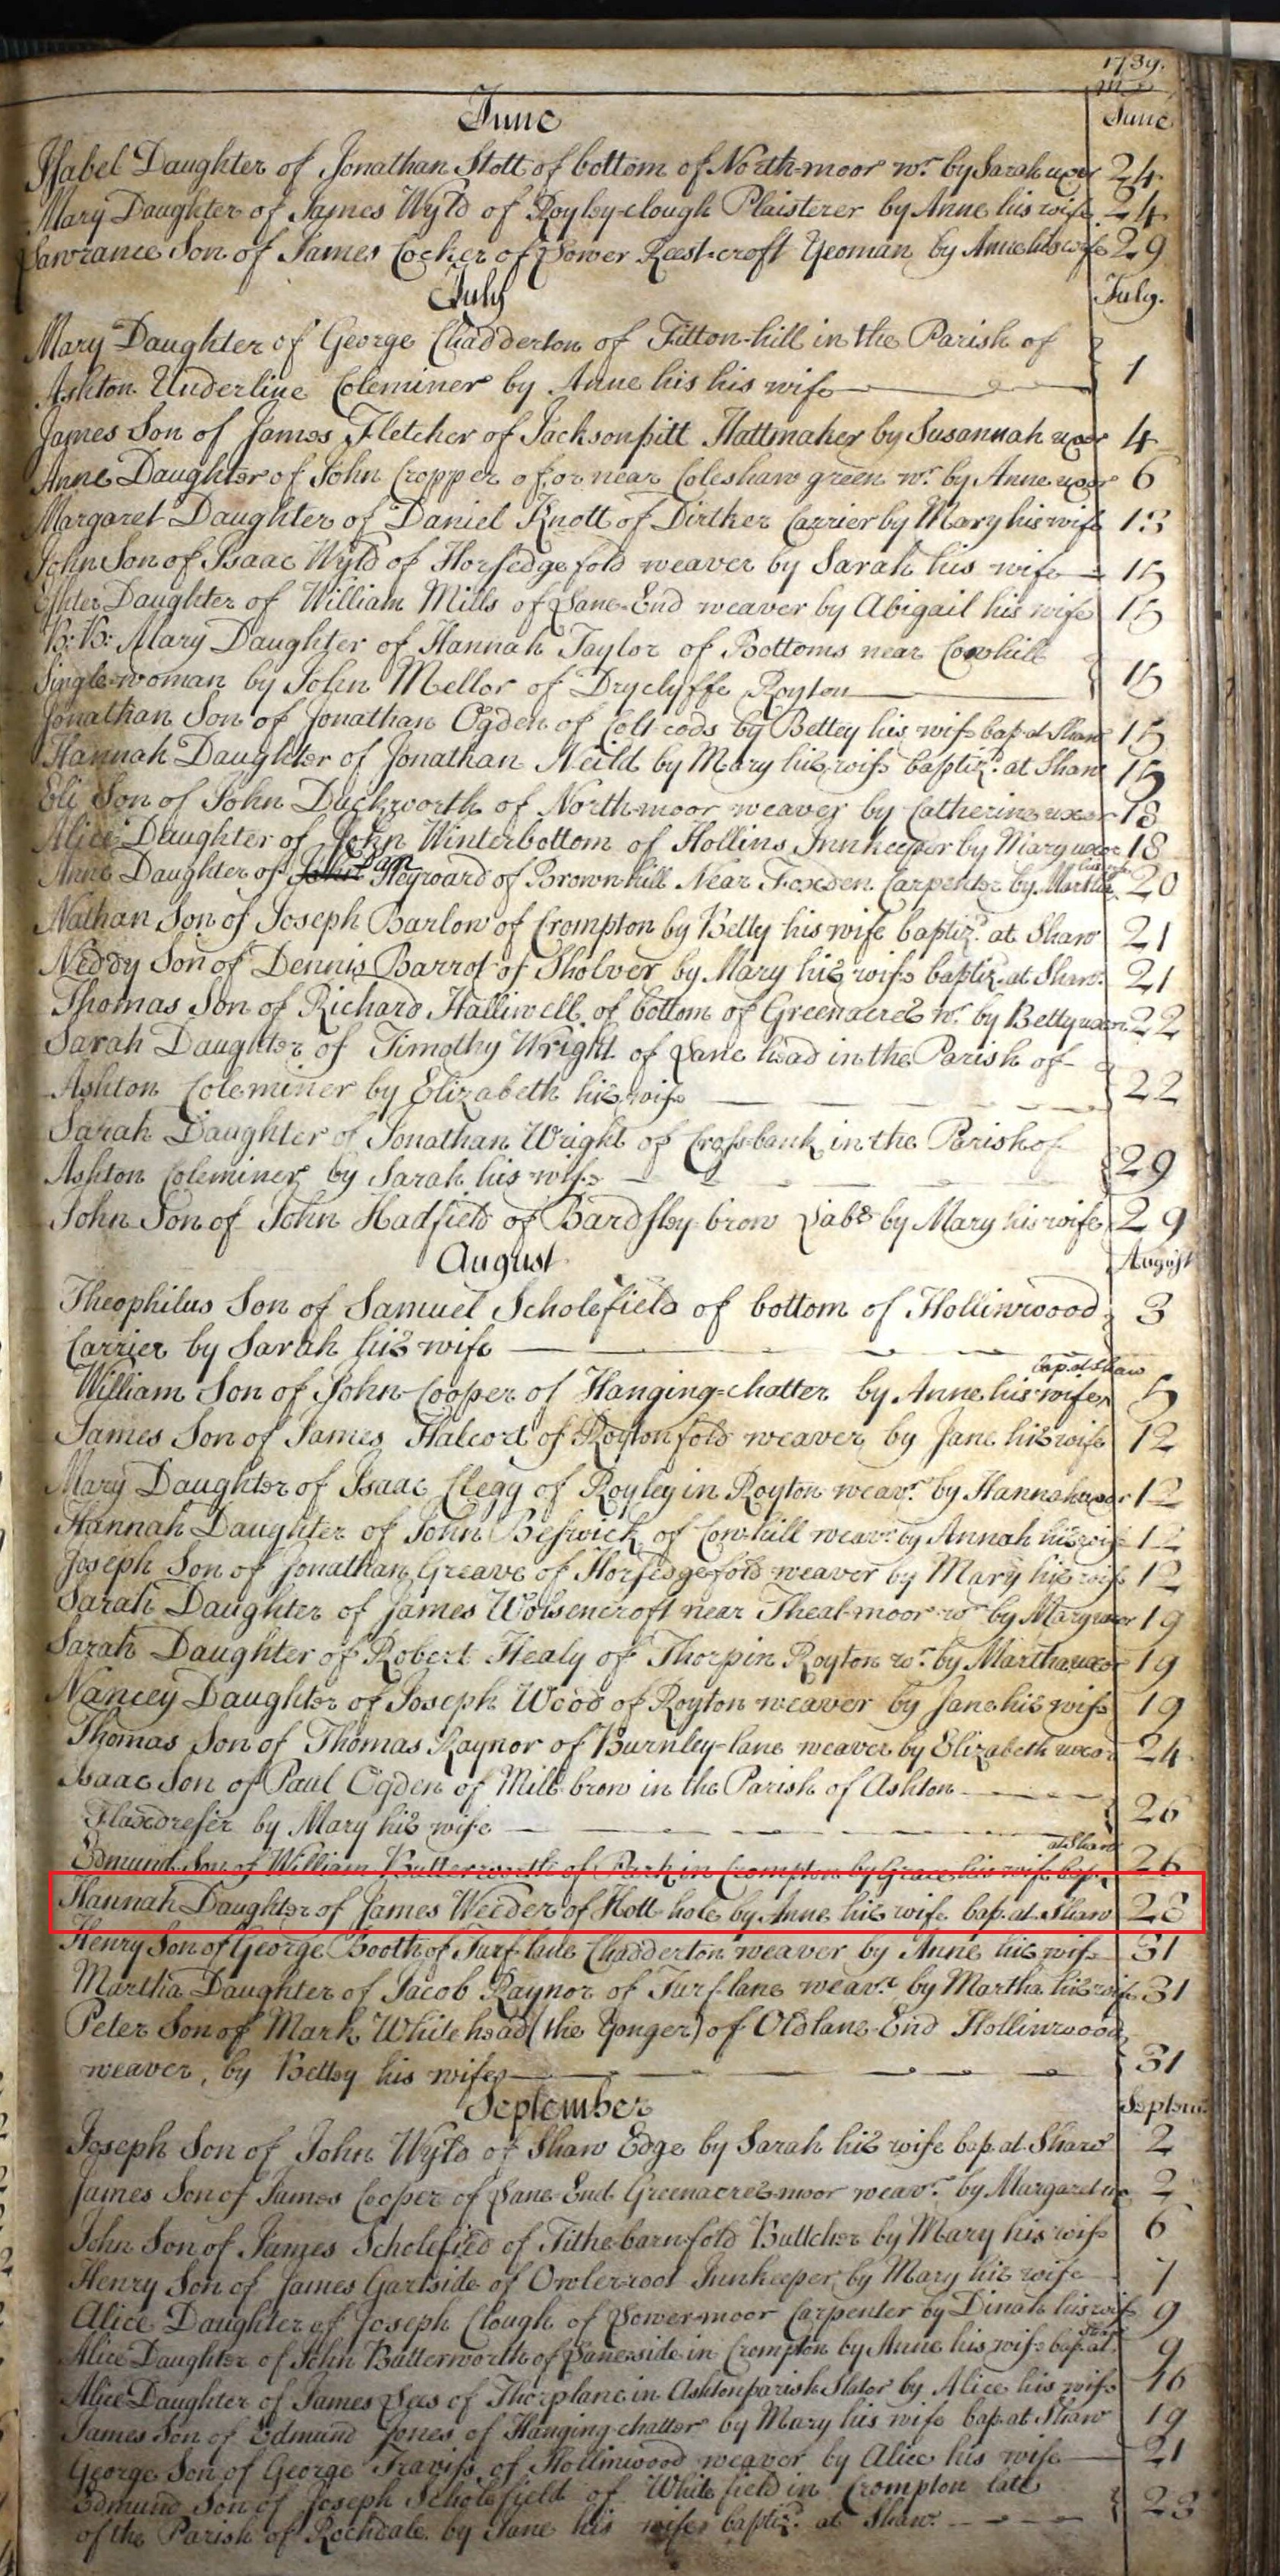 1739.
June
June
Isabel Daughter of Jonathan Stott of bottom of North-moor wr. by Sarah uxor 24
Mary Daughter of James Wyld of Royley-clough Plaisterer by Anne his wife 24
Lawrance Son of James Cocker of Lower Reest-croft Yeoman by Anne his wife 29
July
July.
Mary Daughter of George Chadderton of Fitton-hill in the Parish of
Ashton Underline Coleminer by Anne his his wife 1
James Son of James Fletcher of Jacksonpitt Hattmaker by Susannah uxor 4
Anne Daughter of John Cropper of or near Coleshaw green wr. by Anne uxor 6
Margaret Daughter of Daniel Knott of Dirtker Carrier by Mary his wife 13
John Son of Isaac Wyld of Horsedge fold weaver by Sarah his wife 15
Esther Daughter of William Mills of Lane-End weaver by Abigail his wife 15
B: B: Mary Daughter of Hannah Taylor of Bottoms near Cowhill
Single-woman by John Mellor of Dryclyffe Royton 15
Jonathan Son of Jonathan Ogden of Colt-cods by Bettey his wife bap. at Shaw 15
Hannah Daughter of Jonathan Neild by Mary his wife baptiz.d at Shaw 15
Eli Son of John Duckworth of North-moor weaver by Catherine uxor 18
Alice Daughter of John Winterbottom of Hollins Innkeeper by Mary uxor 18
Anne Daughter of John Dan Heyward of Brown-hill Near Foxden Carpenter by Martha 20
Nathan Son of Joseph Barlow of Crompton by Betty his wife baptiz.d at Shaw 21
Neddy Son of Dennis Barrot of Sholver by Mary his wife baptiz. at Shaw. 21
Thomas Son of Richard Halliwell of bottom of Greenacres wr. by Betty uxor 22
Sarah Daughter of Timothy Wright of Lane head in the Parish of
Ashton Coleminer by Elizabeth his wife 22
Sarah Daughter of Jonathan Wright of Cross-bank in the Parish of
Ashton Coleminer by Sarah his wife 29
John Son of John Hadfield of Bardsley-brow Labr by Mary his wife 29
August
August
Theophilus Son of Samuel Scholefield of bottom of Hollinwoood 3
Carrier by Sarah his wife
bap. at Shaw
William Son of John Cooper of Hanging-chatter by Anne his wife 5
James Son of James Halcort of Royton fold weaver by Jane his wife 12
Mary Daughter of Isaac Clegg of Royley in Royton weavr. by Hannah uxor 12
Hannah Daughter of John Beswick of Cowhill weavr. by Annah his wife 12
Joseph Son of Jonathan Greave of Horsedge-fold weaver by Mary his wife 12
Sarah Daughter of James Wolsencroft near Theal-moor wr by Mary uxor 19
Sarah Daughter of Robert Healy of Thorpin Royton wr. by Martha uxor 19
Nancey Daughter of Joseph Wood of Royton weaver by Jane his wife 19
Thomas Son of Thomas Raynor of Burnley-lane weaver by Elizabeth uxor 24
Isaac Son of Paul Ogden of Mill-brow in the Parish of Ashton
Flaxdresser by Mary his wife 26
at Shaw
Edmund Son of William Butterworth of Park in Crompton by Grace his wife bap. 26
Hannah Daughter of James Weeder of Hott-hole by Anne his wife bap. at Shaw 28
Henry Son of George Booth of Turf-lane Chadderton weaver by Anne his wife 31
Martha Daughter of Jacob Raynor of Turf-lane weavr. by Martha his wife 31
Peter Son of Mark Whitehead (the Yonger) of Oldlane-End Hollinwood
weaver, by Bettey his wife 31
September
Septem
Joseph Son of John Wyld of Shaw Edge by Sarah his wife bap. at Shaw 2
James Son of James Cooper of Lane End Greenacres-moor weavr. by Margaret 2
John Son of James Scholefied of Tithe-barn-fold Buttcher by Mary his wife 6
Henry Son of James Gartside of Owler-root Innkeeper by Mary his wife 7
Alice Daughter of Joseph Clough of Lower-moor Carpenter by Dinah his wife 9
Alice Daughter of John Butterworth of Laneside in Crompton by Anne his wife bap. at 9
Alice Daughter of James Lees of Thorplane in Ashton parish Slator by Alice his wife 16
James Son of Edmund Jones of Hanging-chatter by Mary his wife bap. at Shaw 19
George Son of George Traviss of Hollinwood weaver by Alice his wife 21
Edmund Son of Joseph Scholefield of Whitefield in Crompton late
of the Parish of Rochdale by Jane his wife baptiz.d at Shaw. 23